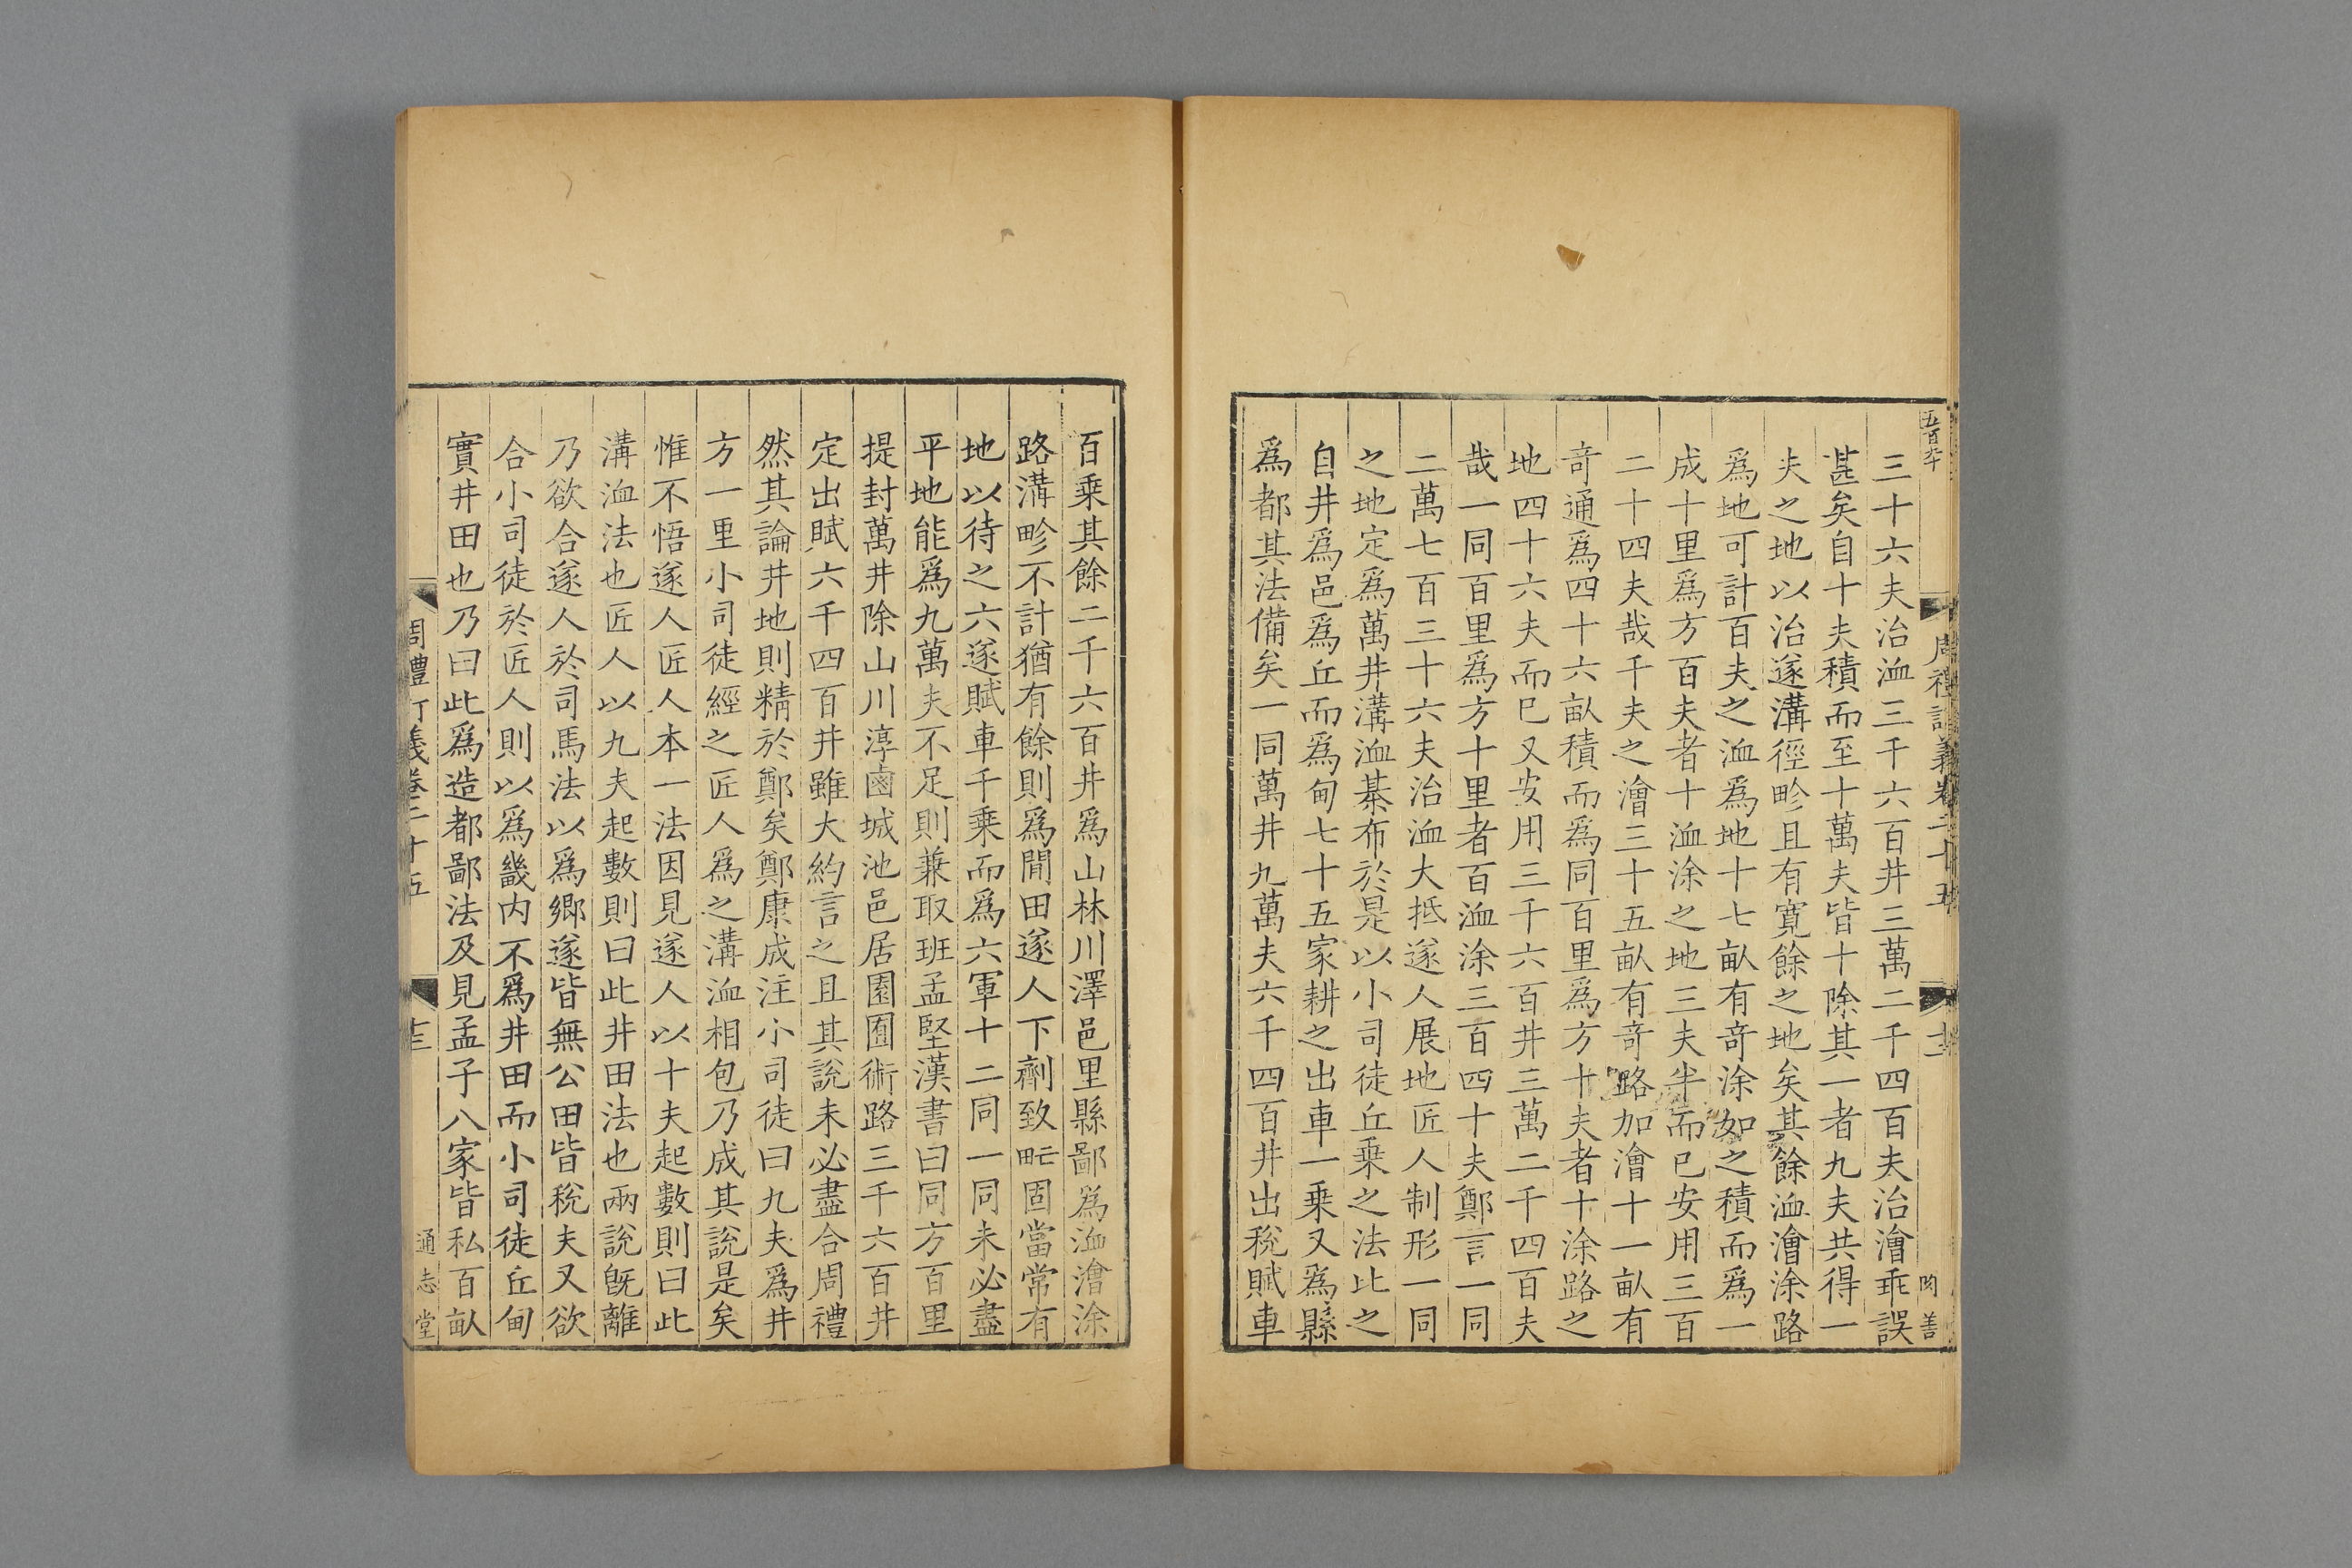 五百六十
周禮訂義卷二十五
三十六夫治洫三千六百井三萬二千四百夫治澮乖誤
甚矣自十夫積而至十萬夫皆十除其一者九夫共得一
夫之地以治遂溝徑畛且有寬餘之地矣其餘洫澮涂路
爲地可計百夫之洫爲地十七畝有奇涂如之積而爲一
成十里爲方百夫者十洫涂之地三夫半而已安用三百
二十四夫哉千夫之澮三十五畝有奇路加澮十一畝有
奇通爲四十六畝積而爲同百里爲方十夫者十涂路之
地四十六夫而已又安用三千六百井三萬二千四百夫
哉一同百里爲方十里者百洫涂三百四十夫鄭言一同
二萬七百三十六夫治洫大抵遂人展地匠人制形一同
之地定爲萬井溝洫棊布於是以小司徒丘乗之法比之
自井爲邑爲丘而爲甸七十五家耕之出車一乗又爲縣
爲都其法備矣一同萬井九萬夫六千四百井出稅賦車
百乗其餘二千六百井爲山林川澤邑里縣鄙爲洫澮涂
路溝畛不計猶有餘則爲閒田遂人下劑致甿固當常有
地以待之六遂賦車千乗而爲六軍十二同一同未必盡
平地能爲九萬夫不足則兼取班孟堅漢書曰同方百里
提封萬井除山川淳鹵城池邑居園囿術路三千六百井
定出賦六千四百井雖大約言之且其說未必盡合周禮
然其論井地則精於鄭矣鄭康成注小司徒曰九夫爲井
方一里小司徒經之匠人爲之溝洫相包乃成其說是矣
惟不悟遂人匠人本一法因見遂人以十夫起數則曰此
溝洫法也匠人以九夫起數則曰此井田法也兩說旣離
乃欲合遂人於司馬法以爲鄉遂皆無公田皆稅夫又欲
合小司徒於匠人則以爲畿内不爲井田而小司徒丘甸
實井田也乃曰此爲造都鄙法及見孟子八家皆私百畝
周禮訂義卷二十五
十三
通志堂